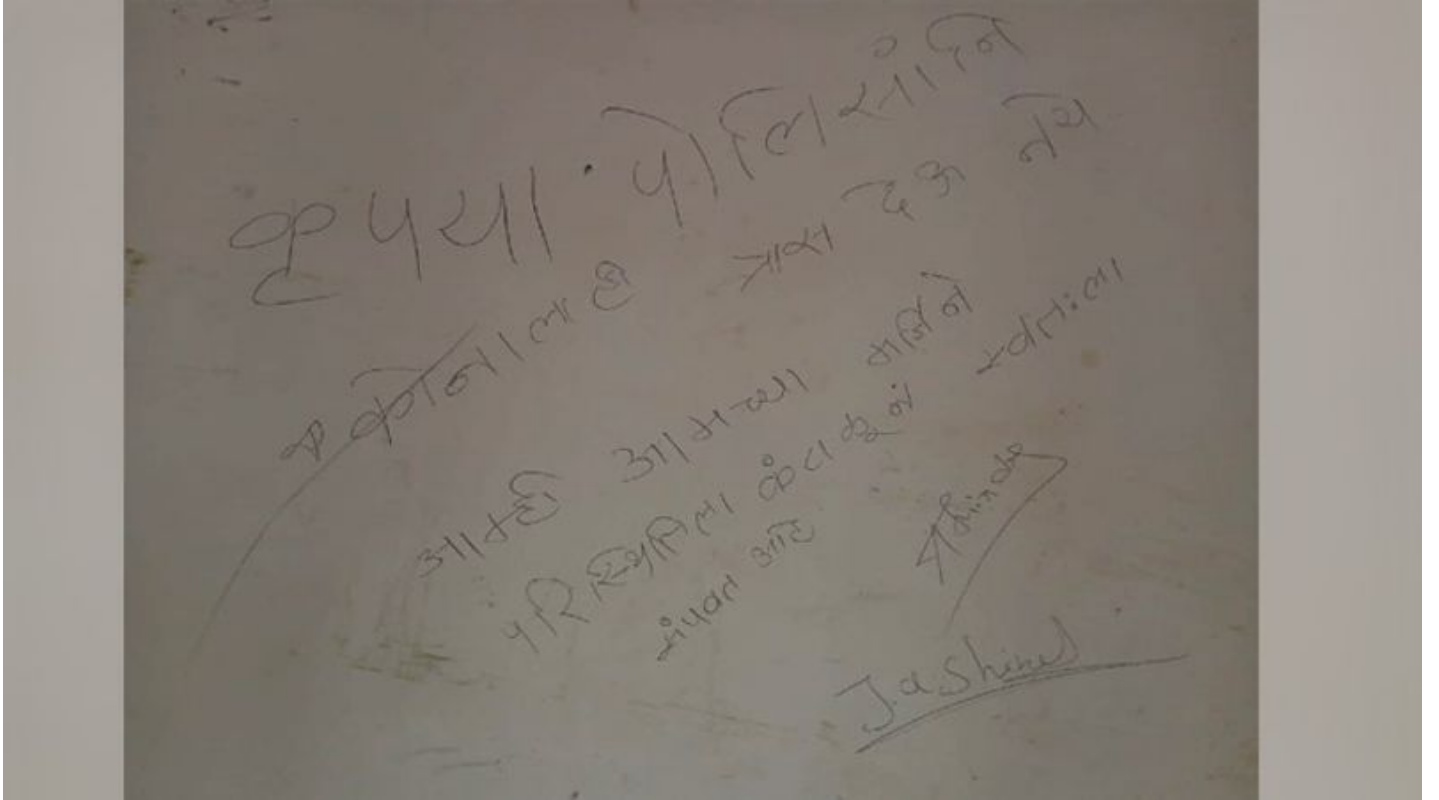 कृपया पोलिसांनि
कोनालाही त्रास देऊ नये
आम्ही आमच्या मर्जिने
परिस्थितिला कंटाळून स्वतःला
संपवत आहे
Shinde
JaShinde